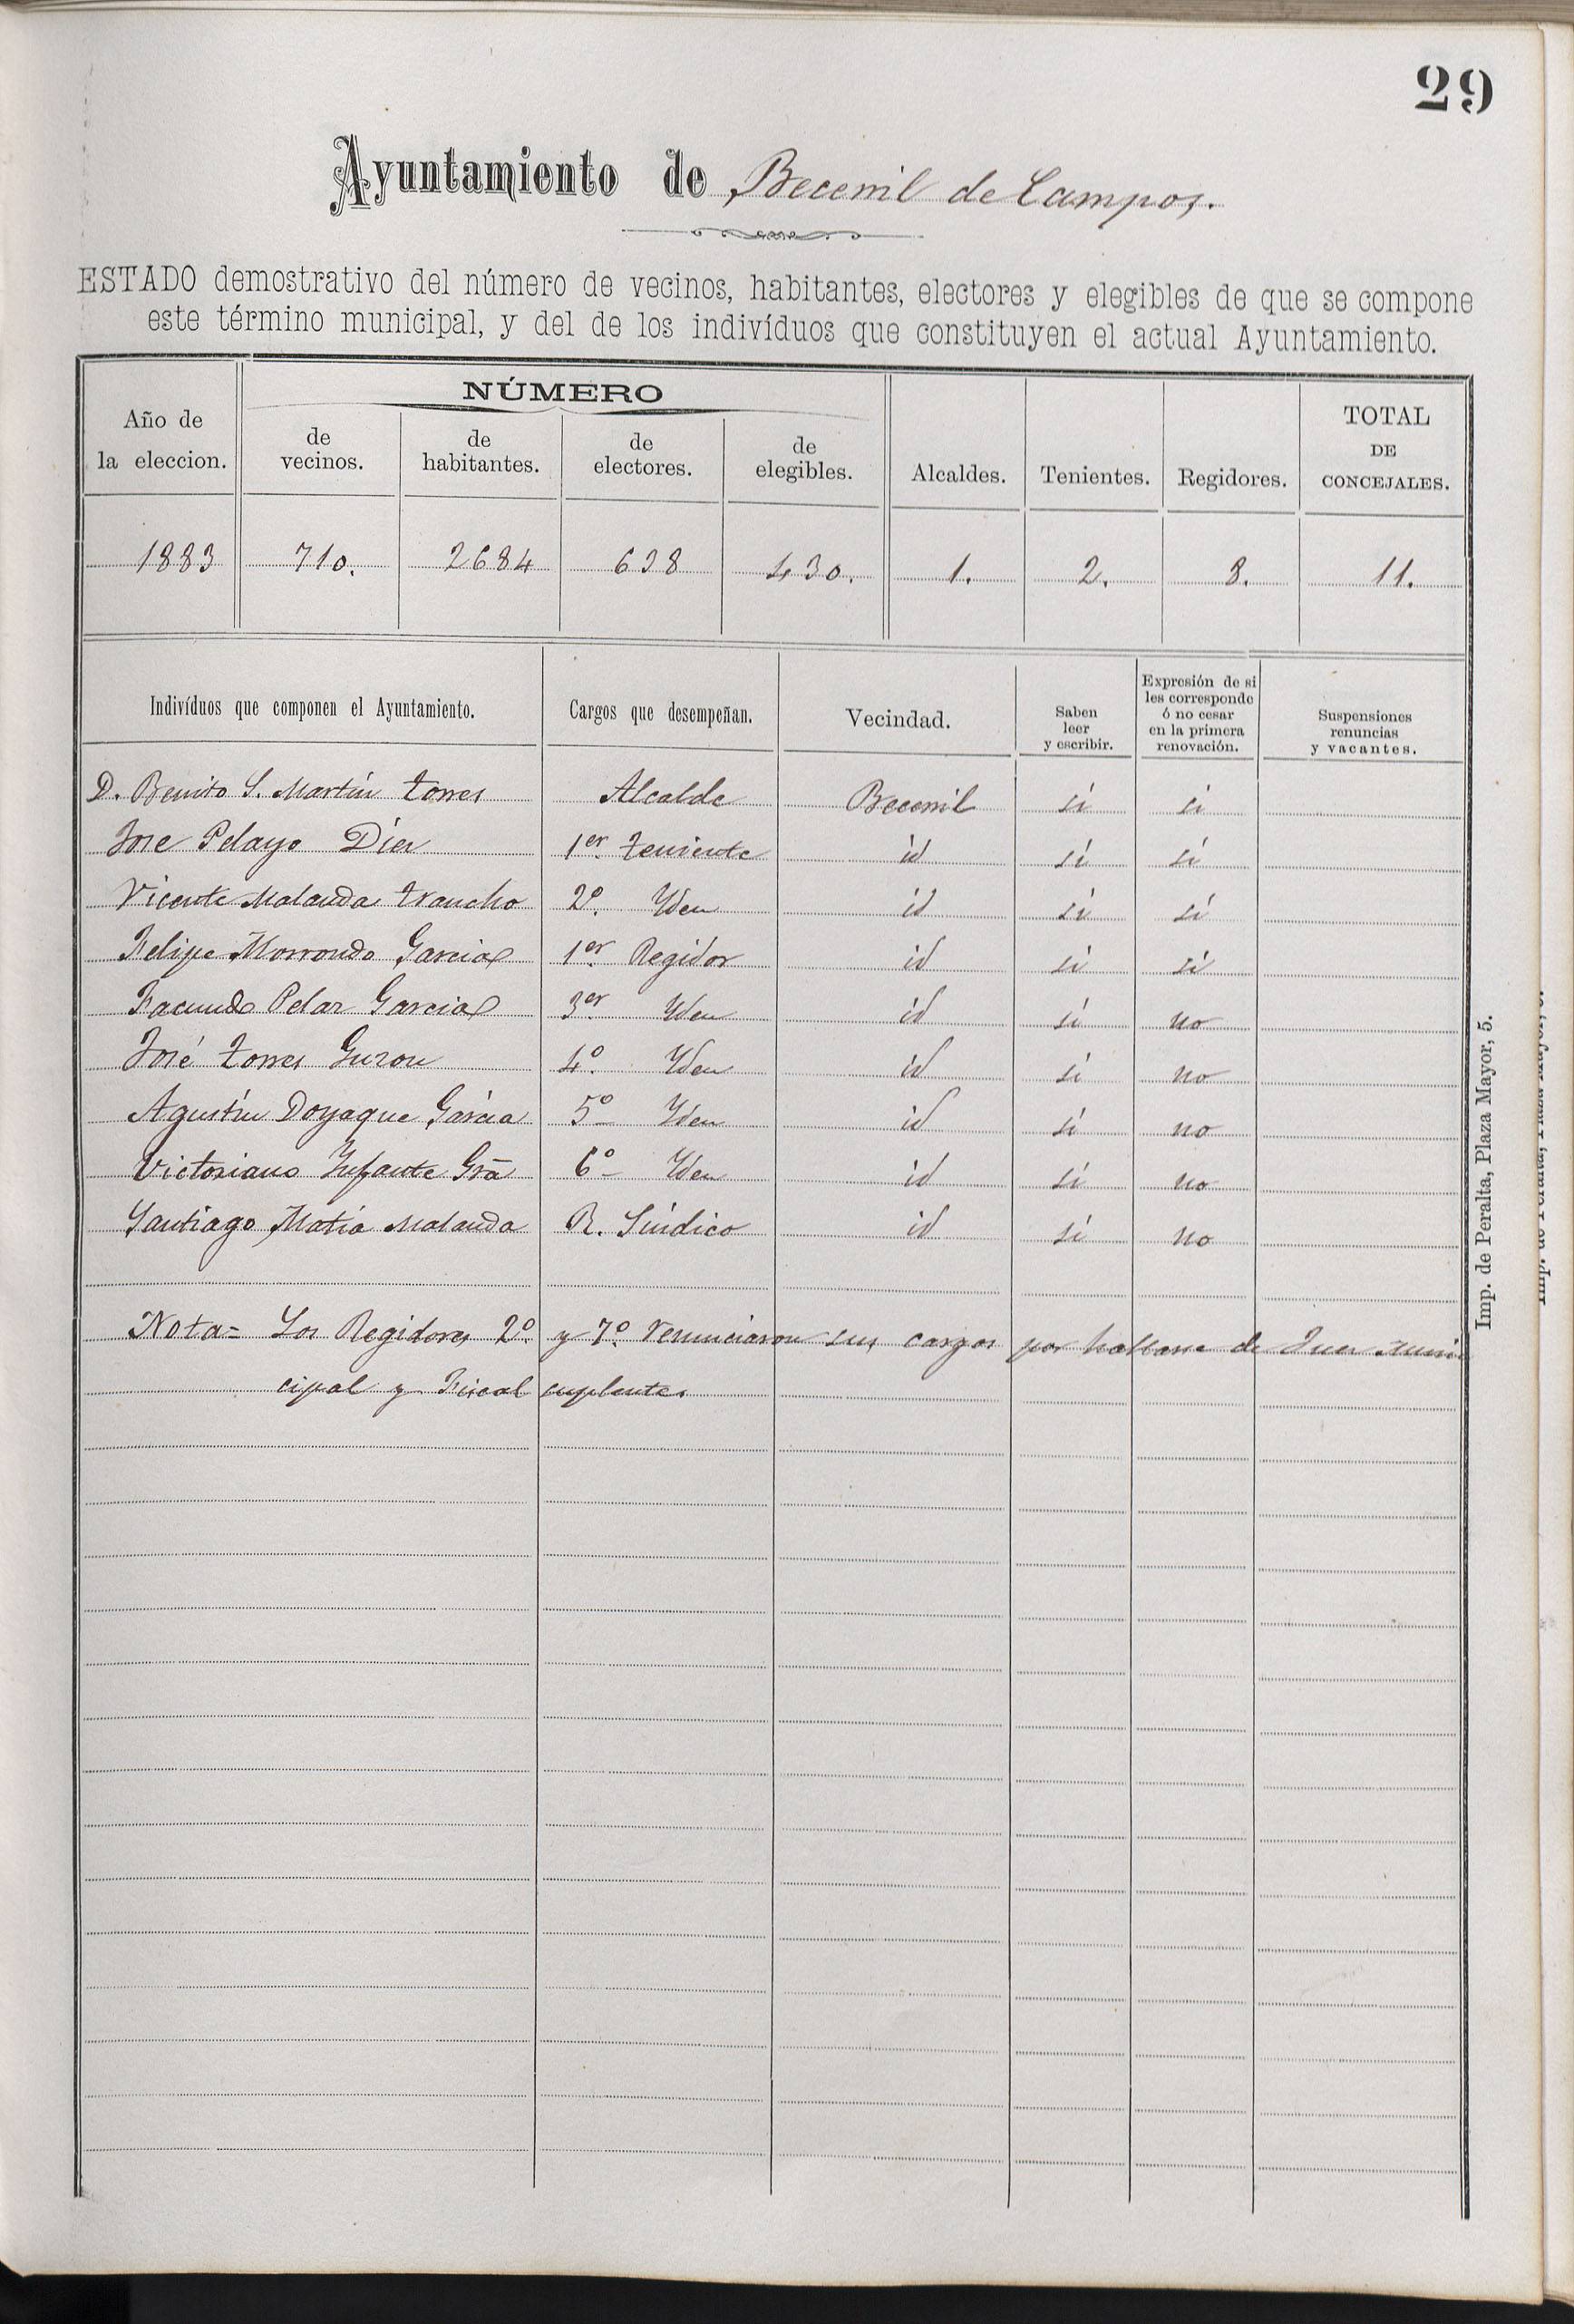 29
Ayuntamiento de Becerril de Campos.
ESTADO demostrativo del número de vecinos, habitantes, electores y elegibles de que se compone
este término municipal, y del de los indivíduos que constituyen el actual Ayuntamiento.
Año de la eleccion. NÚMERO de vecinos. de habitantes. de electores. de elegibles. Alcaldes. Tenientes. Regidores. TOTAL DE CONCEJALES.
1883 710. 2684 638 430. 1. 2. 8. 11.
Indivíduos que componen el Ayuntamiento. Cargos que desempeñan. Vecindad. Saben leer y escribir. Expresión de si les corresponde ó no cesar en la primera renovación. Suspensiones renuncias y vacantes.
D. Benito S. Martín Torres Alcalde Becerril si si
Jose Pelayo Diez 1er. Teniente id si si
Vicente Malanda Trancho 2º. Yden id si si
Felipe Morrondo Garcia 1er. Regidor id si si
Facundo Pelaz Garcia 3er. Yden id si no
José Torres Guzon 4º. Yden id si no
Agustín Doyague Garcia 5º Yden id si no
Victoriano Infante Gra 6º Yden id si no
Santiago Matia Malanda R. Síndico id si no
Nota= Los Regidores 2º. y 7º. renunciaron sus cargos por hallarse de Juez muni
cipal y Fiscal suplente.
Imp. de Peralta, Plaza Mayor, 5.